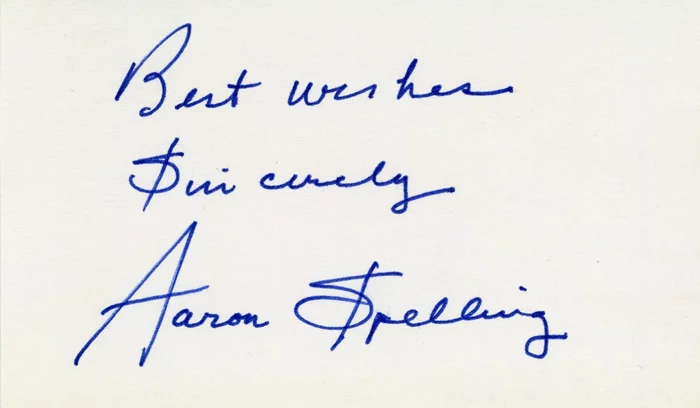 Best wishes
Sincerely
Aaron Spelling